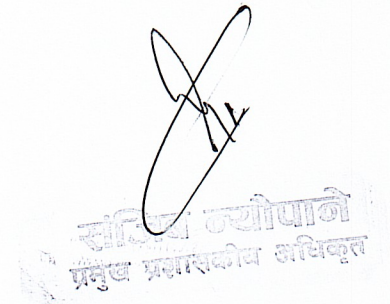 संजिब न्यौपाने
प्रमुख प्रशासकीय अधिकृत